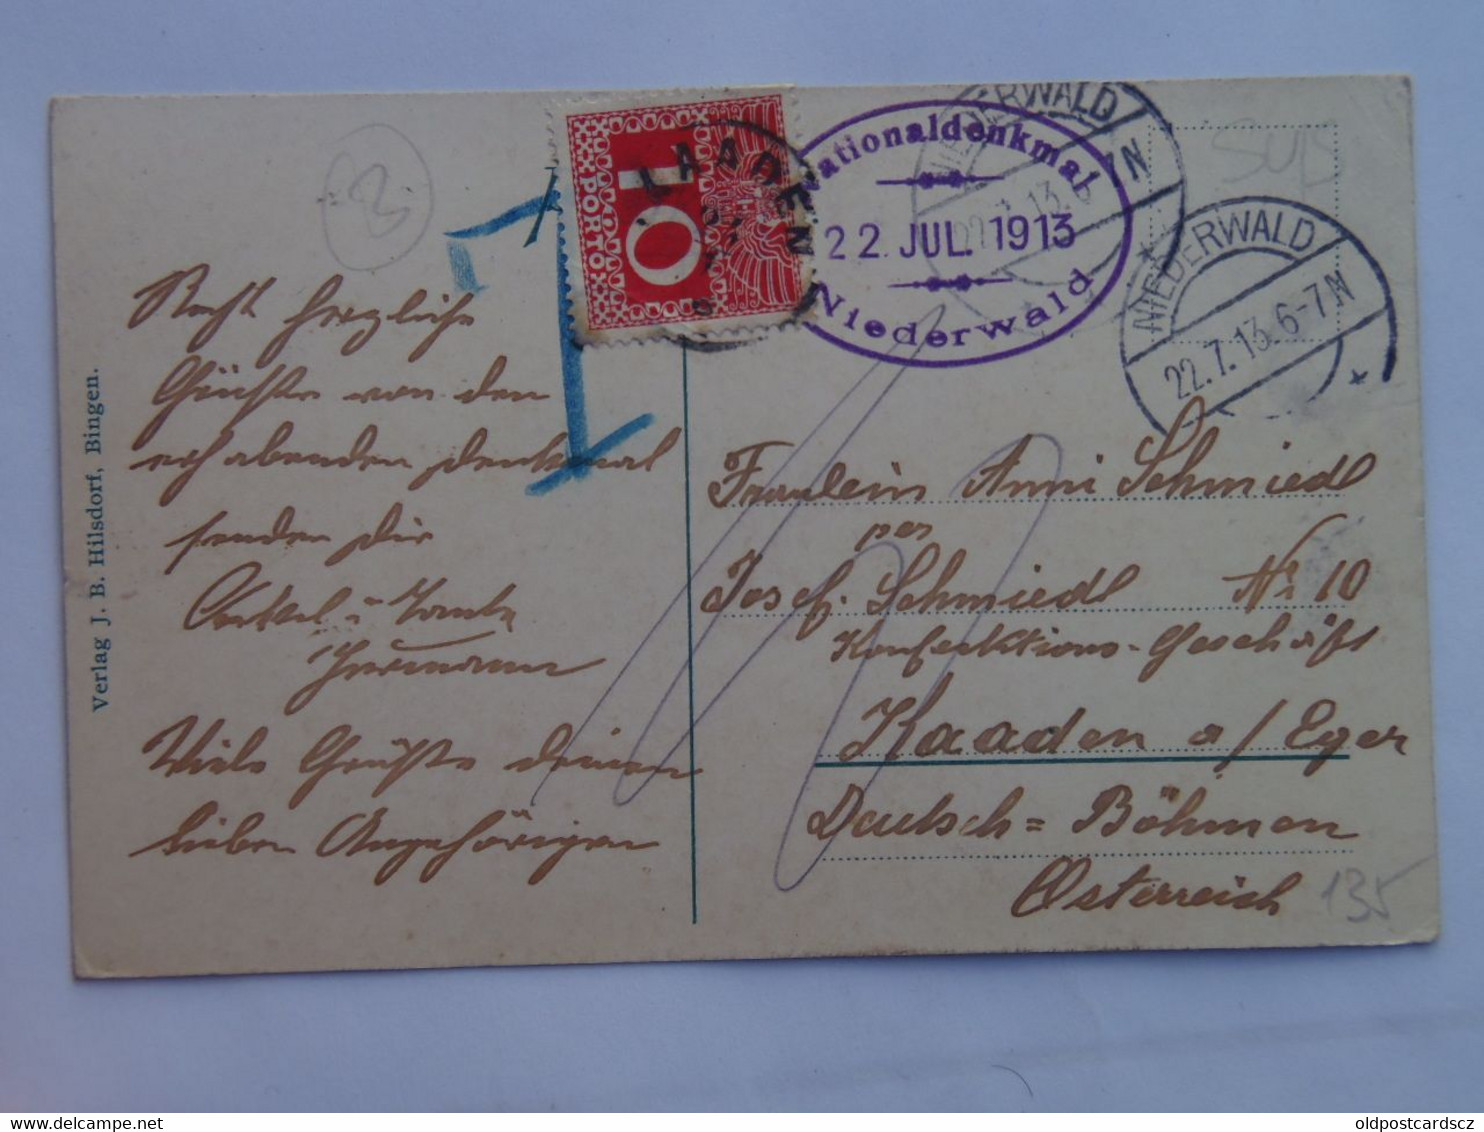 Verlag J. B. Hilsdorf, Bingen.
3
Recht herzliche
Grüße von den
erhabenen Denkmal
senden Dir
Onkel u Tante
Hermann
Viele Grüße deinen
lieben Angehörigen
10
PORTO
KAADEN
Nationaldenkmal
22. JUL. 1913
Niederwald
NIEDERWALD
22.7.13. 6-7N
NIEDERWALD
22.7.13. 6-7N
Fraulein Anni Schmiedl
per
Josef. Schmiedl Nr 10
Konfektions-Geschäft
Kaaden a/Eger
Deutsch=Böhmen
Österreich
135
oldpostcardscz